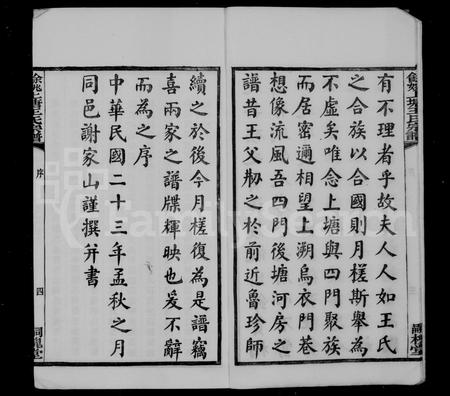 有不理者乎故夫人人如王氏
之合族以合國則月槎斯舉為
不虛矣唯念上塘與四門聚族
而居密邇相望上溯烏衣門巷
想像流風吾四門後塘河房之
譜昔王父刱之於前近魯珍師
續之於後今月槎復為是譜竊
喜兩家之譜牒輝映也爰不辭
而為之序
中華民國二十三年孟秋之月
同邑謝家山謹撰并書
餘姚上塘王氏宗譜
序
四